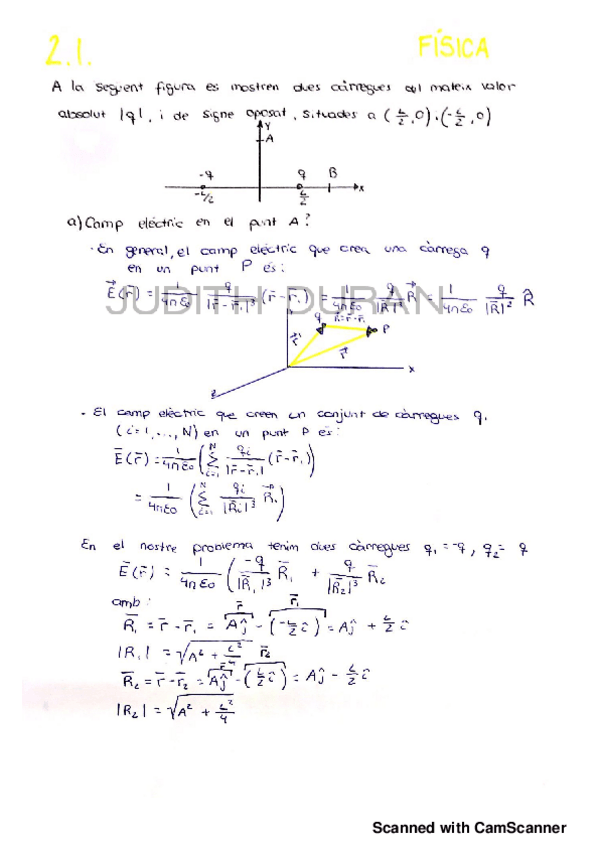 2.1. FÍSICA
A la següent figura es mostren dues càrregues del mateix valor
absolut |q|, i de signe oposat, situades a (L/2, 0) i (-L/2, 0)
Y
A
-q q B
-L/2 L/2 x
a) Camp elèctric en el punt A?
· En general, el camp elèctric que crea una càrrega q
en un punt P és:
E⃗(r⃗) = 1/4πε0 q/|r̄-r̄₁|³ (r̄-r̄₁) = 1/4πε0 q/|R̄|³ R̄ = 1/4πε0 q/|R̄|² R̂
JUDITH DURAN
q R̄=r̄-r̄₁ P
r⃗' r⃗
x
z
- El camp elèctric que creen un conjunt de càrregues qᵢ
(i=1, ..., N) en un punt P és:
E̅(r̄) = 1/4πε0 (Σ N i=1 qᵢ/|r̄-r̄ᵢ|³ (r̄-r̄ᵢ))
= 1/4πε0 (Σ N i=1 qᵢ/|R̄ᵢ|³ R̄ᵢ)
En el nostre problema tenim dues càrregues q₁=-q, q₂= q
E̅(r̄) = 1/4πε0 (-q/|R̄₁|³ R̄₁ + q/|R̄₂|³ R̄₂
amb: r̄ r̄₁
R̄₁ = r̄ - r̄₁ = Aĵ - (-L/2 î) = Aĵ + L/2 î
|R₁| = √A² + L²/4 r̄₂
R̄₂ = r̄ - r̄₂ = Aĵ - (L/2 î) = Aĵ - L/2 î
|R₂| = √A² + L²/4
Scanned with CamScanner